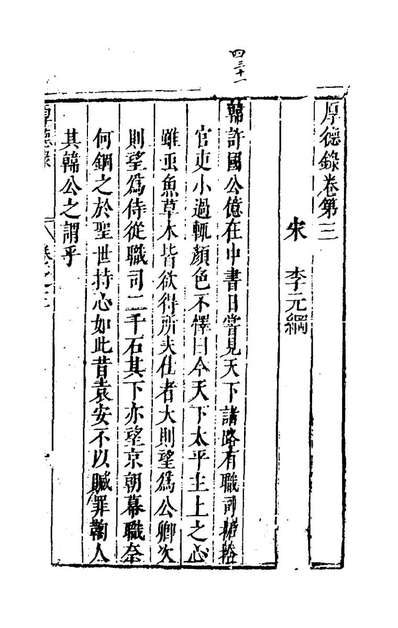 厚德錄卷第三
宋 李元綱
韓許國公億在中書日嘗見天下諸路有職司捃拾
官吏小過輒顏色不懌曰今天下太平主上之心
雖䖝魚草木皆欲得所夫仕者大則望爲公卿次
則望爲侍從職司二千石其下亦望京朝幕職奈
何錮之於聖世持心如此昔袁安不以贓罪鞫人
其韓公之謂乎
厚德錄
四三十一